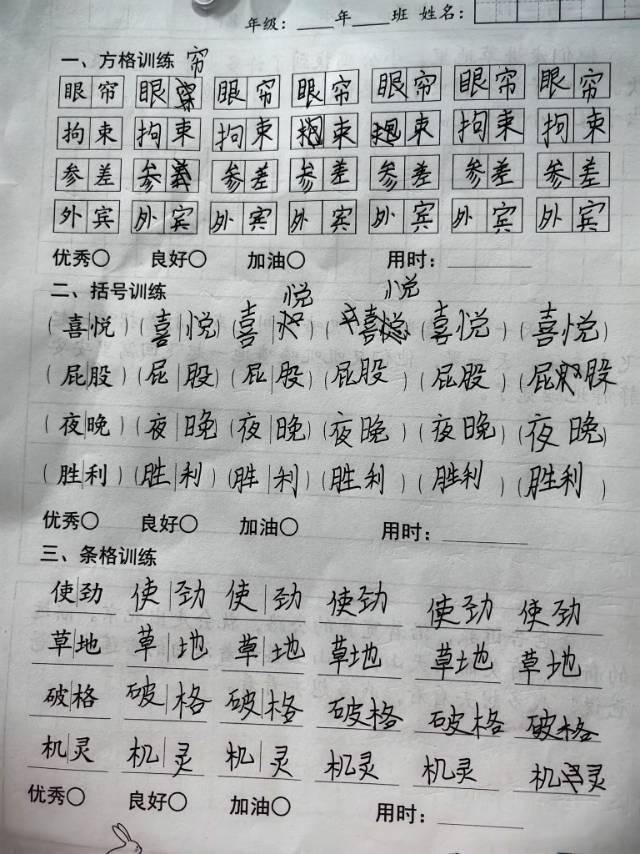 年级：____年____班 姓名：
一、方格训练 帘
眼帘 眼 眼帘 眼帘 眼帘 眼帘 眼帘
拘束 拘束 拘束 束 束 拘束 拘束
参差 参 参差 参差 参差 参差 参差
外宾 外宾 外宾 外宾 外宾 外宾 外宾
优秀○ 良好○ 加油○ 用时：________
二、括号训练 悦 悦
（喜|悦）（喜|悦）（喜|）（喜）（喜悦）（喜悦）
（屁|股）（屁|股）（屁|股）（屁股）（屁股）（屁股）
（夜|晚）（夜|晚）（夜|晚）（夜晚）（夜晚）（夜晚）
（胜|利）（胜|利）（胜|利）（胜利）（胜利）（胜利）
优秀○ 良好○ 加油○ 用时：________
三、条格训练
使|劲 使|劲 使|劲 使劲 使劲 使劲
草|地 草|地 草|地 草地 草地 草地
破|格 破|格 破|格 破格 破格 破格
机|灵 机|灵 机|灵 机灵 机灵 机灵
优秀○ 良好○ 加油○ 用时：________